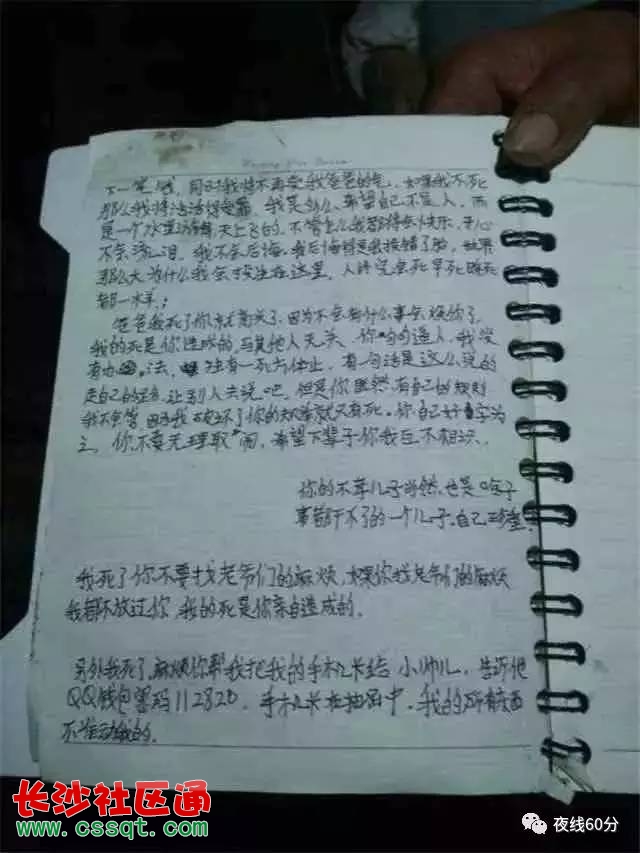 下一觉感，同时我将不再受我爸爸的气，如果我不死
那么我将活活得受罪。我是多么希望自己不是人，而
是一个水里游得天上飞的，不管怎么我都得会快乐，开心
不会流泪，我不会后悔，我后悔得是我投错了胎，世界
那么大为什么我会投生在这里，人终究会死早死晚死
都一样；
爸爸我死了你就高兴了，因为不会有什么事会烦你了，
我的死是你造成的，与其他人无关，你句句逼人，我没
有办法，独有一死为休止，有一句话是这么说的
走自己的路，让别人去说吧，但是你既然有自己的规则
我不会管，因为我破坏了你的规矩就只有死。你自己好自为
之，你不要无理取闹，希望下辈子你我互不相识，
你的不孝儿子当然也是啥子
事都干不了的一个儿子，自己珍重
我死了你不要找老爷们的麻烦，如果你找老爷们的麻烦
我都不放过你，我的死是你亲自造成的。
另外我死了，麻烦你帮我把我的手机卡给小帅儿，告诉他
QQ钱包密码112820，手机卡在抽屉中，我的所有东西
不准动我的，
长沙社区通
www.cssqt.com
夜线60分